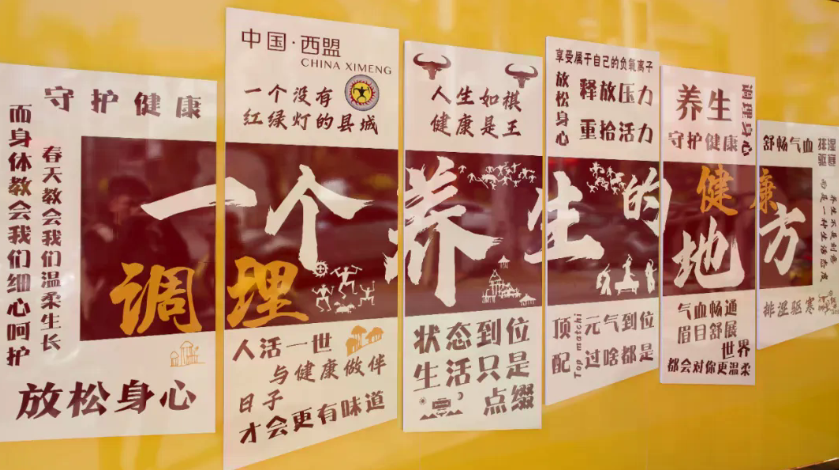 守护健康
春天教会我们温柔生长
而身体教会我们细心呵护
放松身心
中国·西盟
CHINA XIMENG
一个没有
红绿灯的县城
人生如棋
健康是王
享受属于自己的负氧离子
放松身心
释放压力
重拾活力
养生
守护健康
调理身心
舒畅气血
排湿驱寒
一个养生的地方
调理
健康
人活一世
与健康做伴
日子
才会更有味道
状态到位
生活只是
点缀
顶配
Top matchi
元气到位
过啥都是
气血畅通
眉目舒展
世界
都会对你更温柔
排湿驱寒